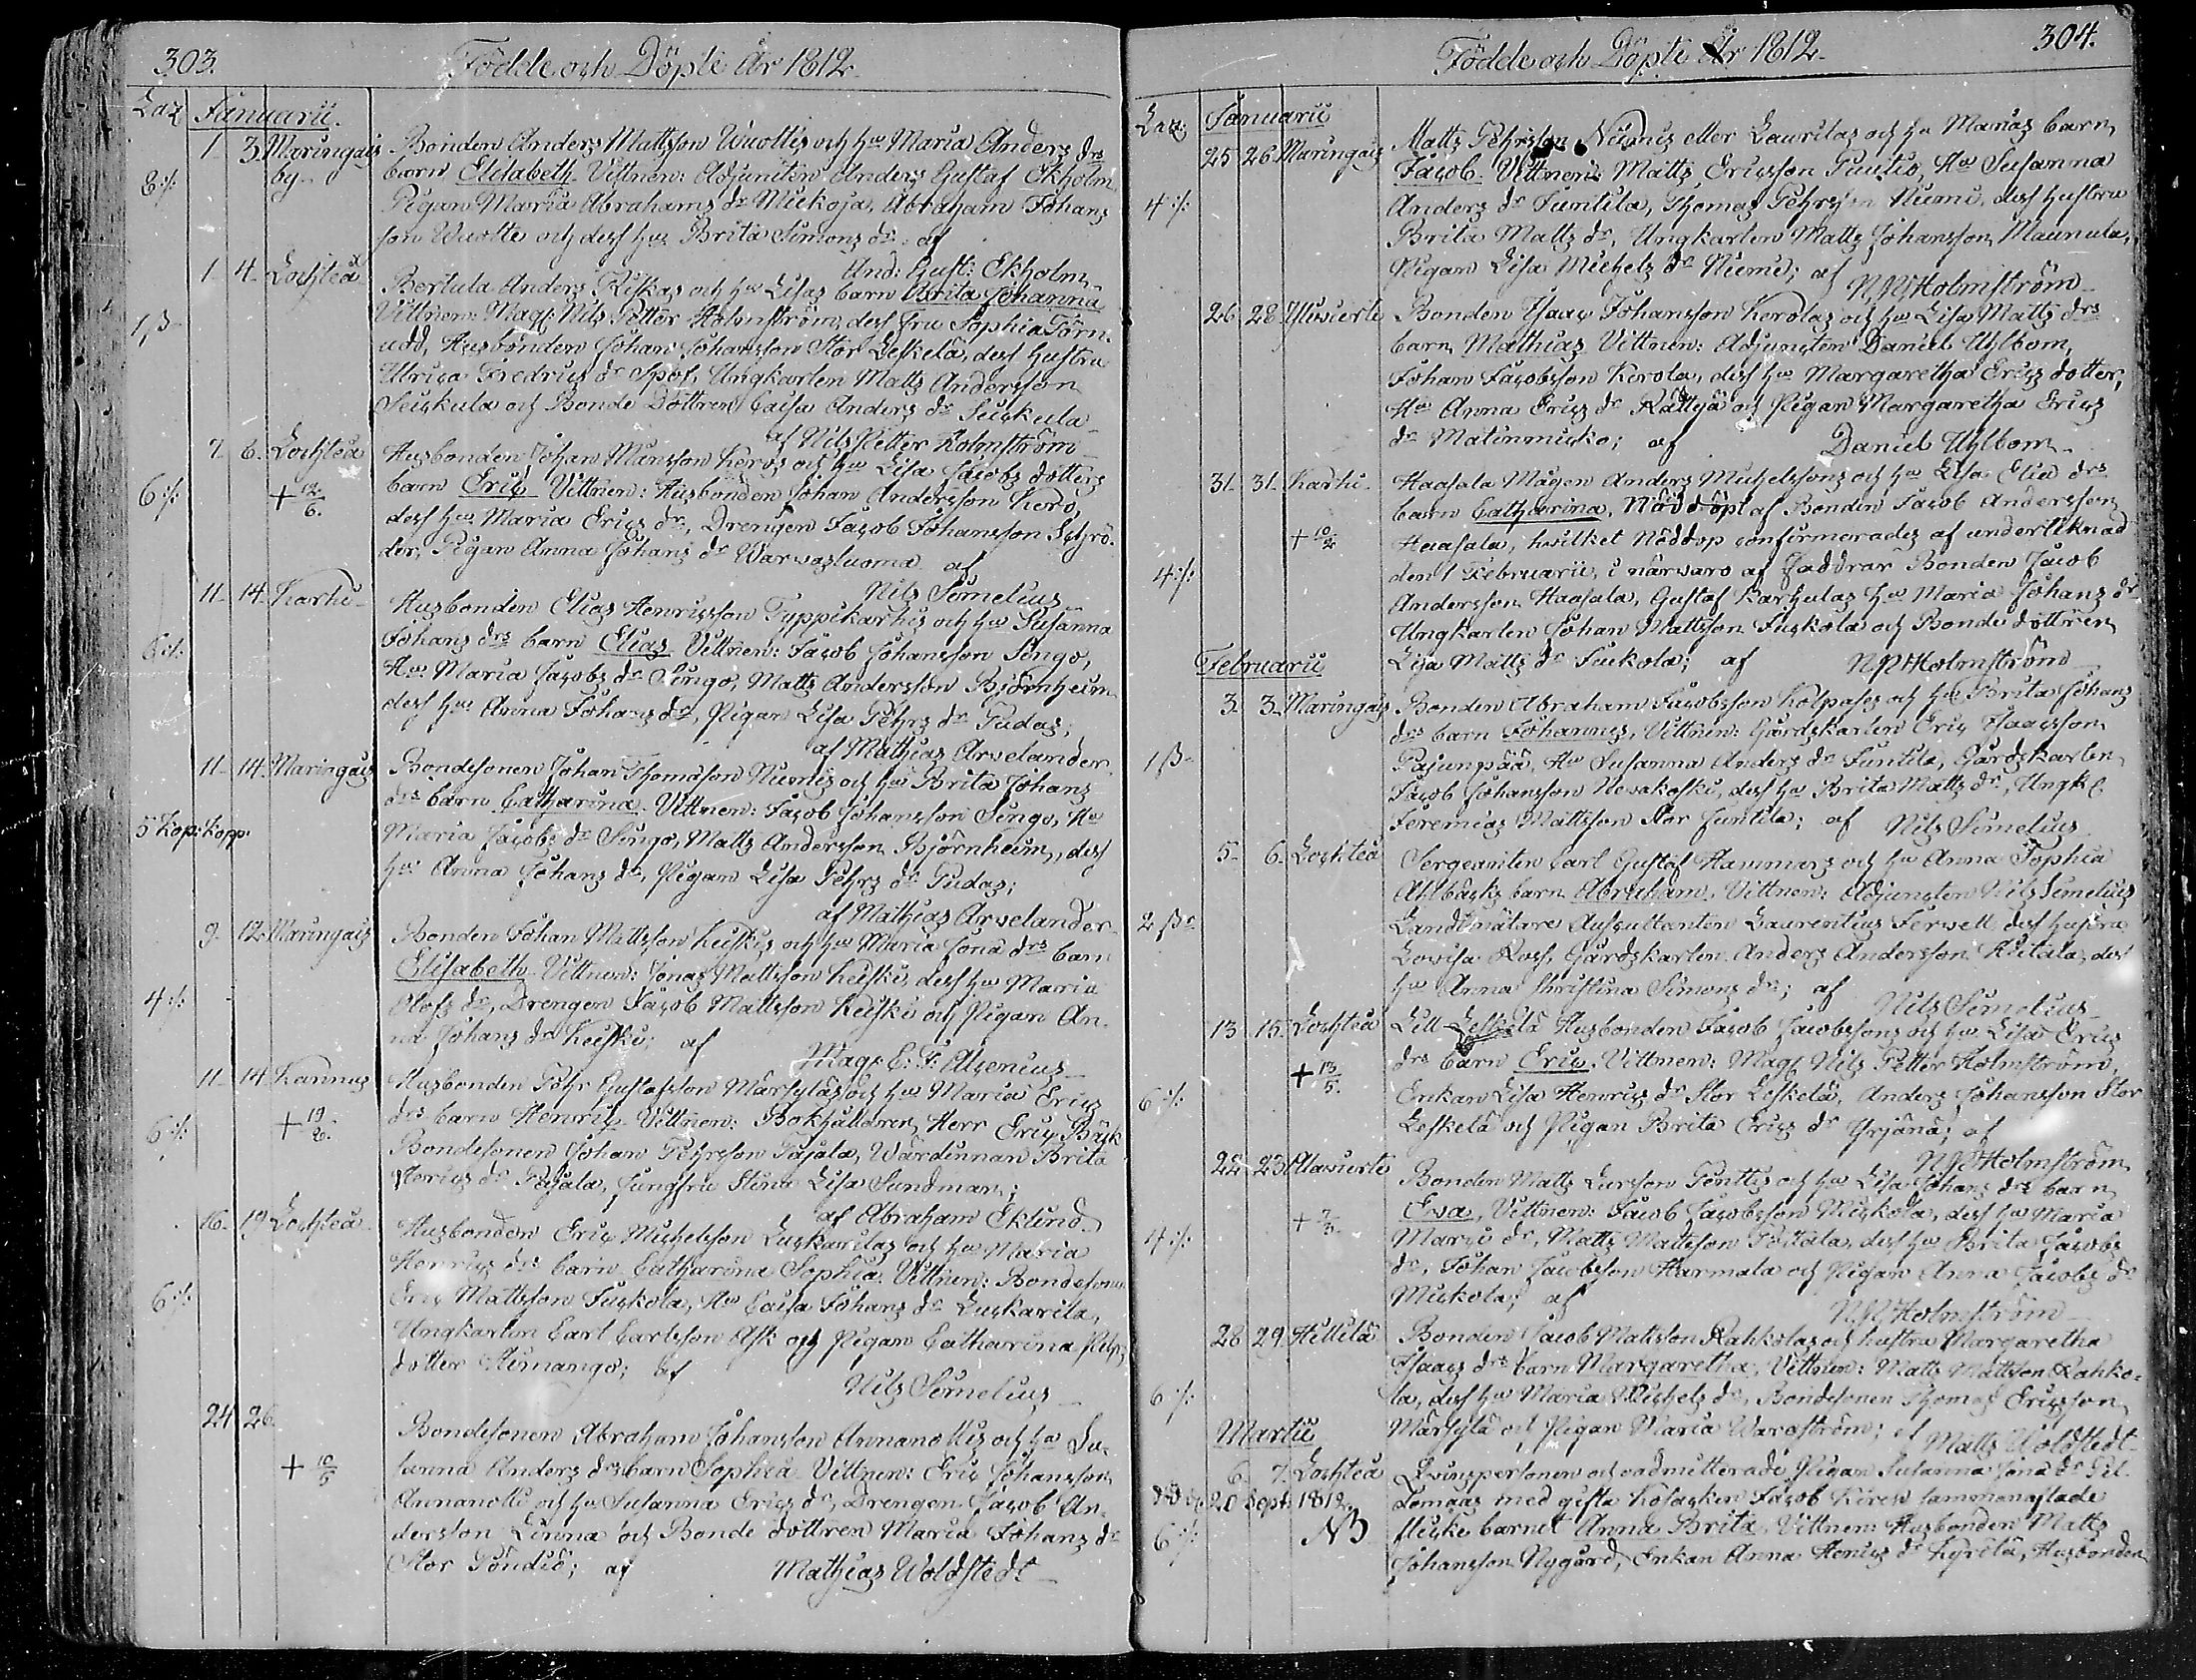 303.
Födde och Döpte År 1812.
Laz Januarii.
1. 3. Maringais by. Bonden Anders Mattsson Wuottis och hu Maria Anders drs
8:/: barn Elisabeth. Vittnen: Adjuncten Anders Gustaf Ekholm
Pigan Maria Abrahams dr Mickoja, Abraham Johans
son Wuotte och dess hu Brita Simons dr af
And: Gust: Ekholm
1. 4. Lochteå Bertula Anders Riskas och hu Lisas barn Brita Johanna
Vittnen: Mag: Nils Petter Holmström, dess Fru Sophia Törn-
1 β udd, Husbonden Johan Johansson Stor Leskelä, dess hustru
Ulrica Fredrics dr Spof, Ungkarlen Matts Andersson
Seuskula och Bonde Dottren Caisa Anders dr Seuskula
af Nils Petter Holmström
7. 6. Lochteå Husbonden Johan Mansson Keros och hu Lisa Jacobs dotters
6:/: + 12/6. barn Eric Vittnen: Husbonden Johan Andersson Kero,
dess hu Maria Erics dr, Drengen Jacob Johansson Schrö-
der, Pigan Anna Johans dr Warwasluoma af
Nils Simelius
11. 14. Karhi Husbonden Elias Henricsson Typpikarhis och hu Susanna
6:/: Johans drs barn Elias Vittnen: Jacob Johansson Singo,
Hu Maria Jacobs dr Singo, Matts Andersson Björnheim
dess hu Anna Johans dr, Pigan Lisa Pehrs dr Tudas;
af Mathias Arvelander
11. 14. Maringais Bondesonen Johan Thomasson Niemis och hu Brita Johans
drs barn Catharina. Vittnen: Jacob Johansson Singo, Hu
5 kop: Kopp: Maria Jacobs dr Singo, Matts Andersson Björnheim, dess
hu Anna Johans dr, Pigan Lisa Pehrs dr Tudas;
af Mathias Arvelander
9. 12. Maringais Bonden Johan Mattsson Keiskis och hu Maria Jona drs barn
Elisabeth Vittnen: Jonas Mattsson Keiski, dess hu Maria
4:/: Olofs dr, Drengen Jacob Mattsson Keiski och Pigan An-
na Johans dr Keiski; af Mag: E: J: Alcenius
11. 14. Kannus Husbonden Pehr Gustafsson Märsyläs och hu Maria Erics
6:/: + 19/20. drs barn Henric Vittnen: Bokhålldren Herr Eric Bäck
Bondesonen Johan Pehrsson Pajala, Wärdinnan Brita
Henrics dr Pajala, Jungfru Stina Lisa Sundman;
af Abraham Eklund
16. 19. Lochteå Husbonden Eric Michelsson Luskarilas och hu Maria
Henrics drs barn Catharina Sophia. Vittnen: Bondesonen
6:/: Eric Mattsson Juckola, Hu Caisa Johans dr Luskarila,
Ungkarlen Carl Carlsson Ask och Pigan Catharina Pehrs
dotter Himango; af Nils Simelius
24. 26. Bondesonen Abraham Johansson Annanottis och hu Su-
+ 10/5 sanna Anders drs barn Sophia Vittnen: Eric Johansson
Annanotti och hu Susanna Erics dr, Drengen Jacob An-
dersson Linna och Bonde dottren Maria Johans dr
Stor Söndiö; af Mathias Woldstedt
304.
Födde och Döpte År 1812.
Laz: Januarii
25. 26. Maringais Matts Pehrsson Niemis eller Lauritas och hu Marias barn
Jacob. Vittnen: Matts Ericsson Puutio, Hu Susanna
4:/: Anders dr Juntila, Thomas Pehrsson Niemi, dess hustru
Brita Matts dr, Ungkarlen Matts Johansson Maunula,
Pigan Lisa Michels dr Niemi; af N.P. Holmström
26. 28. Yliwierte Bonden Isaac Johansson Kerolas och hu Lisa Matts drs
barn Mathias Vittnen: Adjuncten Daniel Uhlbom,
Johan Jacobsson Kerola, dess hu Margaretha Erics dotter,
Hu Anna Erics dr Rättyä och Pigan Margaretha Erics
dr Matinmicko; af Daniel Uhlbom
31. 31. Karhi Haasala Mågen Anders Michelssons och hu Lisa Elia drs
barn Catharina. Nöddöpt af Bonden Jacob Andersson
+ 10/2 Haasala, hwilket Nöddop confirmerades af undertecknad
4:/: den 1 Februarii, i närwaro af Faddrar Bonden Jacob
Andersson Haasala, Gustaf Karhulas hu Maria Johans dr
Ungkarlen Johan Mattsson Juckola och Bonde dottren
Lisa Matts dr Juckola; af N.P. Holmström
Februarii
3. 3. Maringais Bonden Abraham Jacobsson Kolpasis och hu Brita Johans
drs barn Johannes, Vittnen: Gårdskarlen Eric Isaacsson
1 β Pajunpää, Hu Susanna Anders dr Juntila, Gårdskarlen
Jacob Johansson Newakoski, dess hu Brita Matts dr, Ungk:
Jeremias Mattsson Stor Juntila; af Nils Simelius
5. 6. Lochteå Sergeanten Carl Gustaf Hammars och hu Anna Sophia
Ahlbäcks barn Abraham. Vittnen: Adjuncten Nils Simelius
2 β Landtmätare Auscultanten Laurentius Ferwell dess hustru
Lovisa Ross, Gårdskarlen Anders Andersson Hietala, dess
hu Anna Christina Simons dr; af Nils Simelius
13. 15. Lochteå Lill Leskelä Husbonden Jacob Jacobssons och hu Lisa Erics
+ 13/5. drs barn Eric. Vittnen: Mag: Nils Petter Holmström,
6:/: Enkan Lisa Henrics dr Stor Leskelä, Anders Johansson Stor
Leskelä och Pigan Brita Erics dr Yrjänä; af
N.P. Holmström
22. 23. Alawierte Bonden Matts Larsson Penttis och hu Lisa Johans drs barn
+ 7/3. Ewa, Vittnen: Jacob Jacobsson Mickola, dess hu Maria
4:/: Marci dr, Matts Mattsson Tastula, dess hu Brita Jacobs
dr, Johan Jacobsson Harmala och Pigan Anna Jacobs dr
Mickola; af N.P. Holmström
28. 29. Hillilä Bonden Jacob Mattsson Rahkolas och hustru Margaretha
Isaacs drs barn Margaretha. Vittnen: Matts Mattsson Rahko-
6:/: la, dess hu Maria Michels dr, Bondesonen Thomas Ericsson
Martii Märsylä och Pigan Maria Wargström; af Matts Woldstedt
6. 7. Lochteå Qvinspersonen och oadmitterade Pigan Susanna Jona dr
död d: 20 Sept: 1812. med gifta Kosacken Jacob Kirew sammanaflade
6:/: NB flicke barnet Anna Brita. Vittnen: Husbonden Matts
Johansson Nygård, Enkan Anna Henrics dr Kyrola, Husbonden